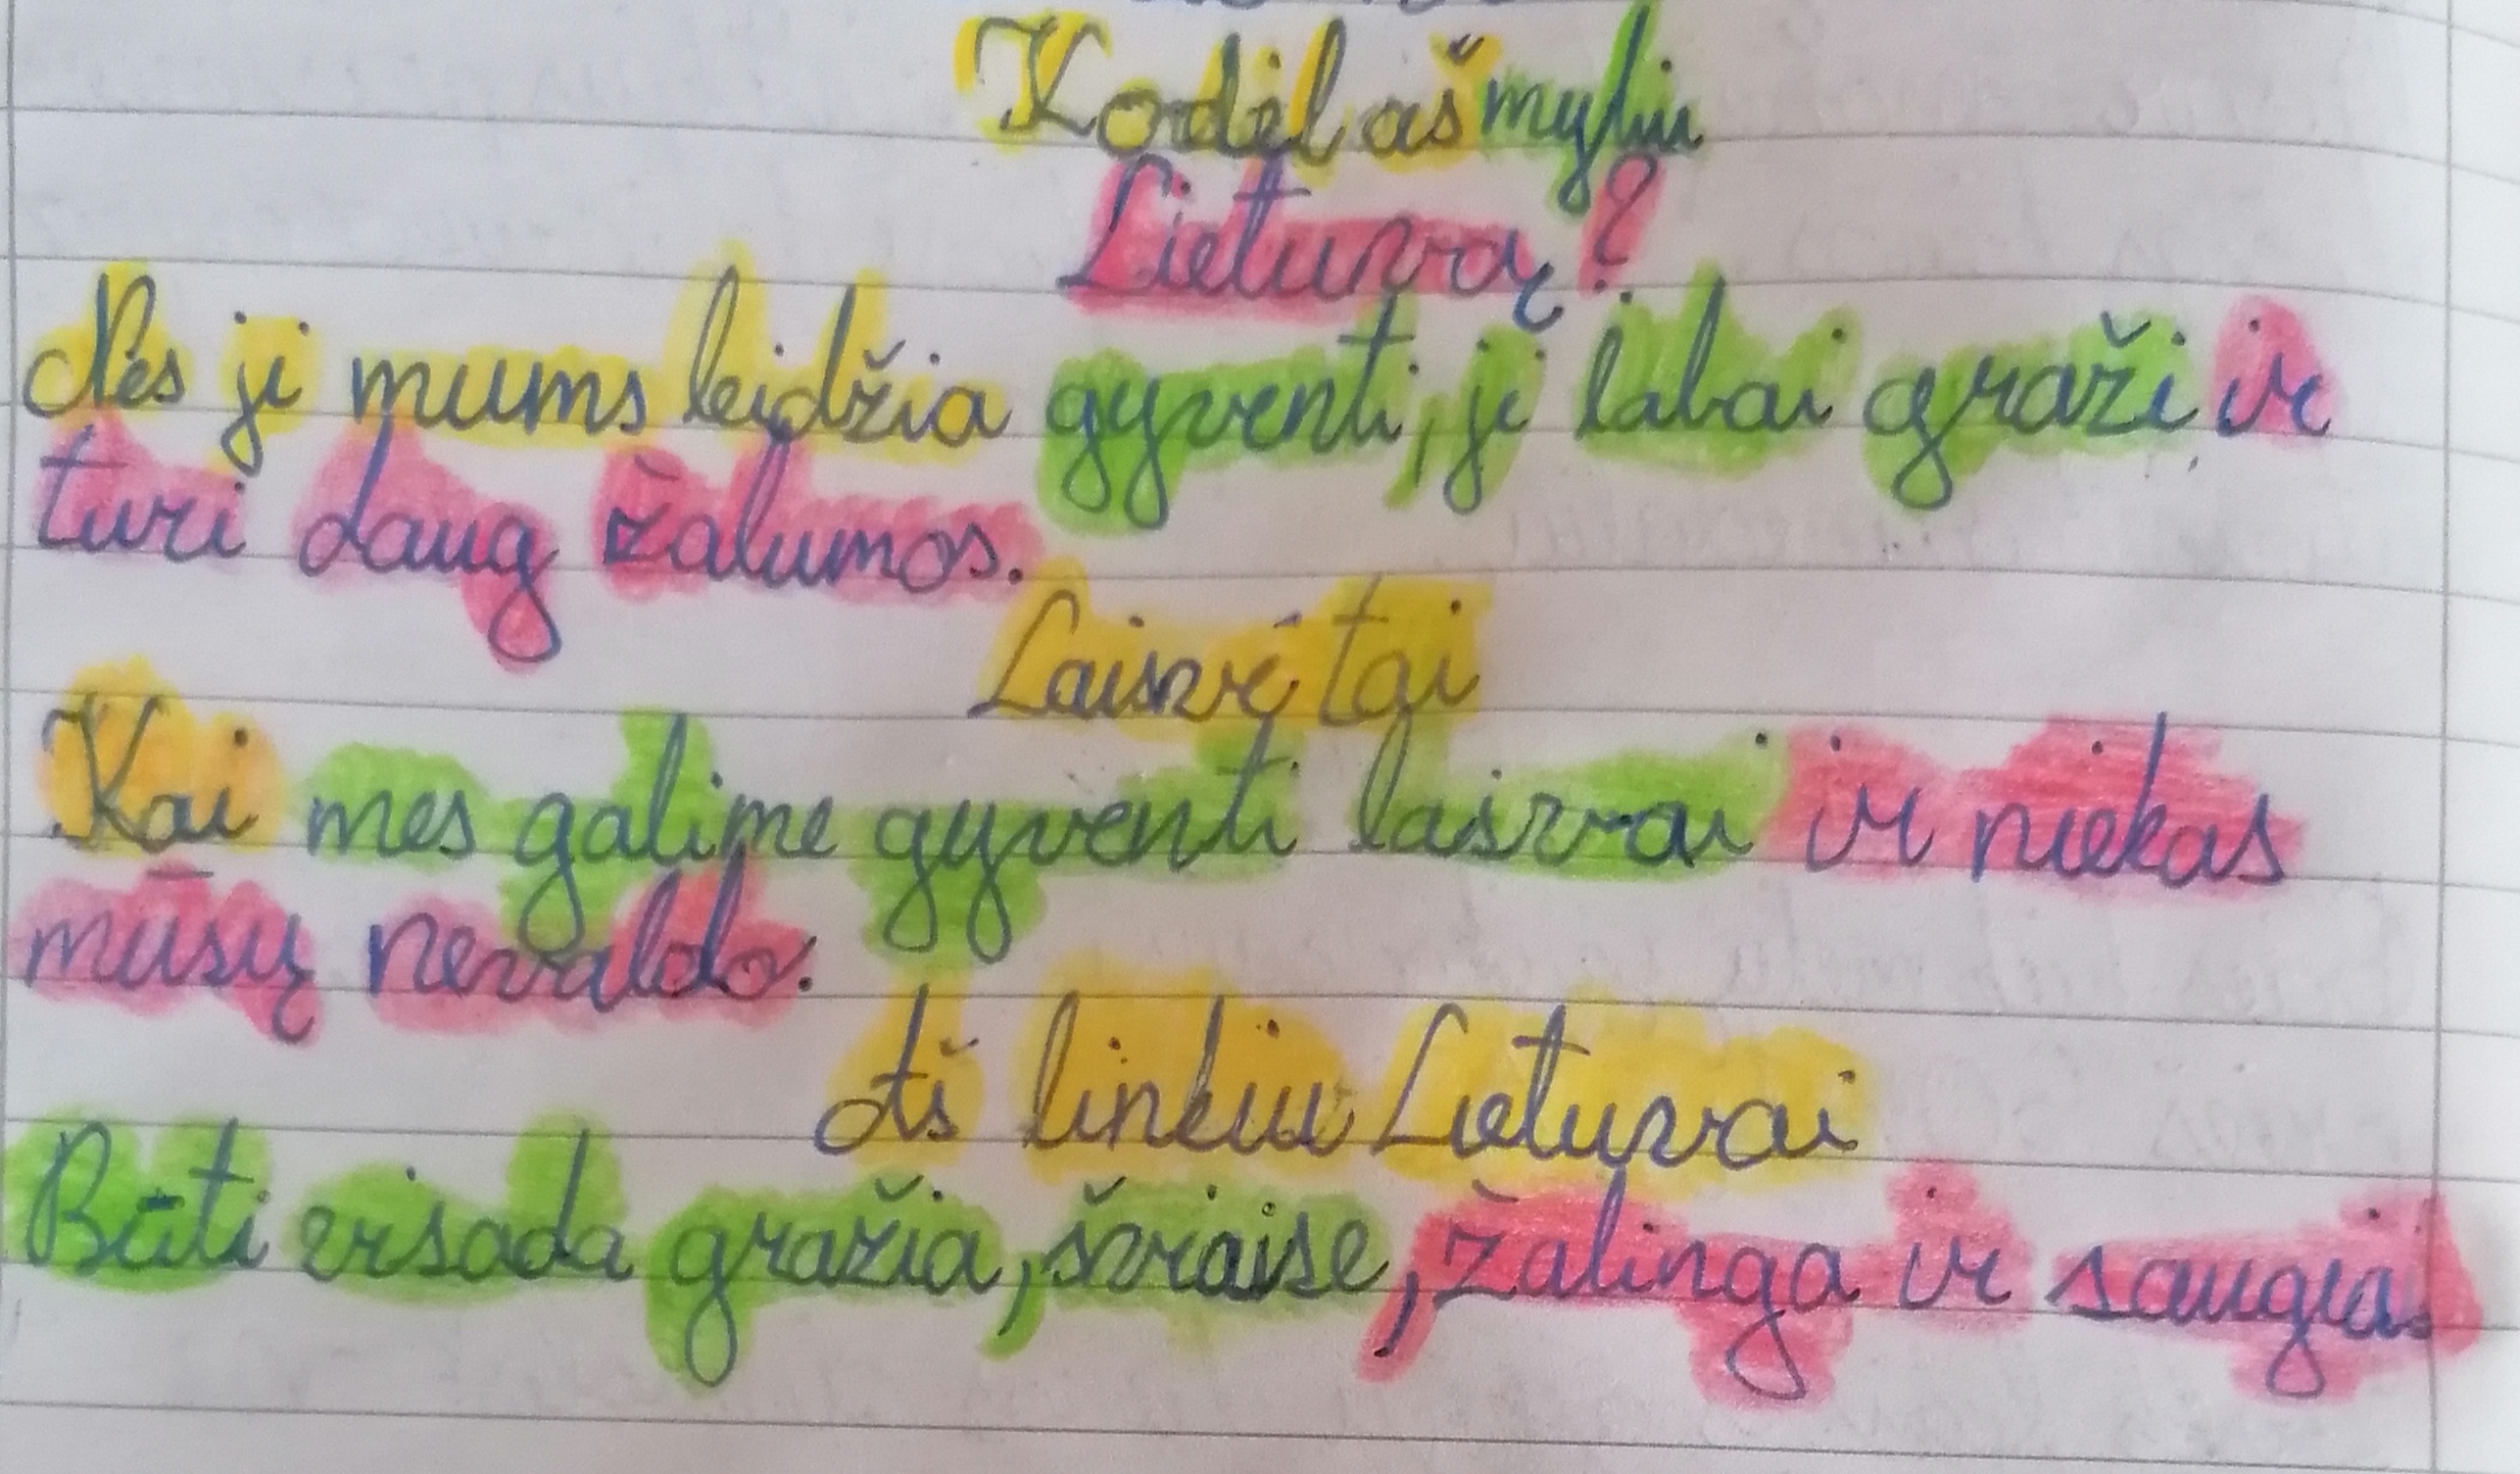 Kodėl aš myliu
Lietuvą?
Nes ji mums leidžia gyventi, ji labai graži ir
turi daug žalumos.
Laisvė tai
Kai mes galime gyventi laisvai ir niekas
mūsų nevaldo.
Aš linkiu Lietuvai
Būti visada gražia, šviaise, žalinga ir saugia.